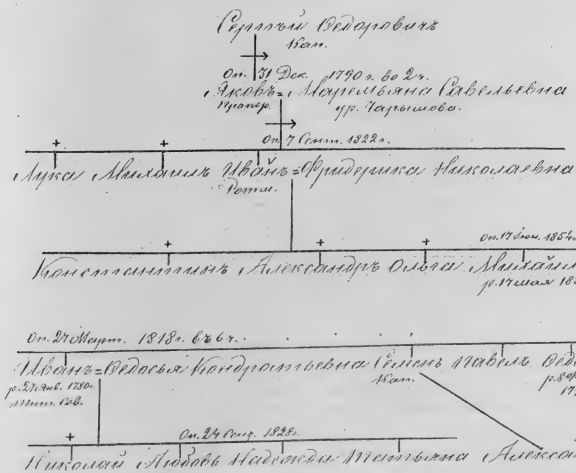 Сергѣй Ѳедоровичъ
Кап.
Оп. 31 Дек. 1790 г. во 2 ч.
Яковъ = Маремьяна Савельевна
Прапор. ур. Чарышова.
Оп. 7 Сент. 1822 г.
Лука Михаилъ Иванъ = Фридерика Николаевна
Ротм.
Оп. 17 Іюн. 1854
Константинъ Александръ Ольга Михаилъ
р. 17 мая 18
Оп. 27 Март. 1818 г. въ 6 ч.
Иванъ = Ѳедосья Кондратьевна Семенъ Павелъ
р. 27 Янв. 1780 г. Кап. р. 8
Тит. Сов. 17
Оп. 24 1828 г.
Николай Любовь Надежда Татьяна Алекса